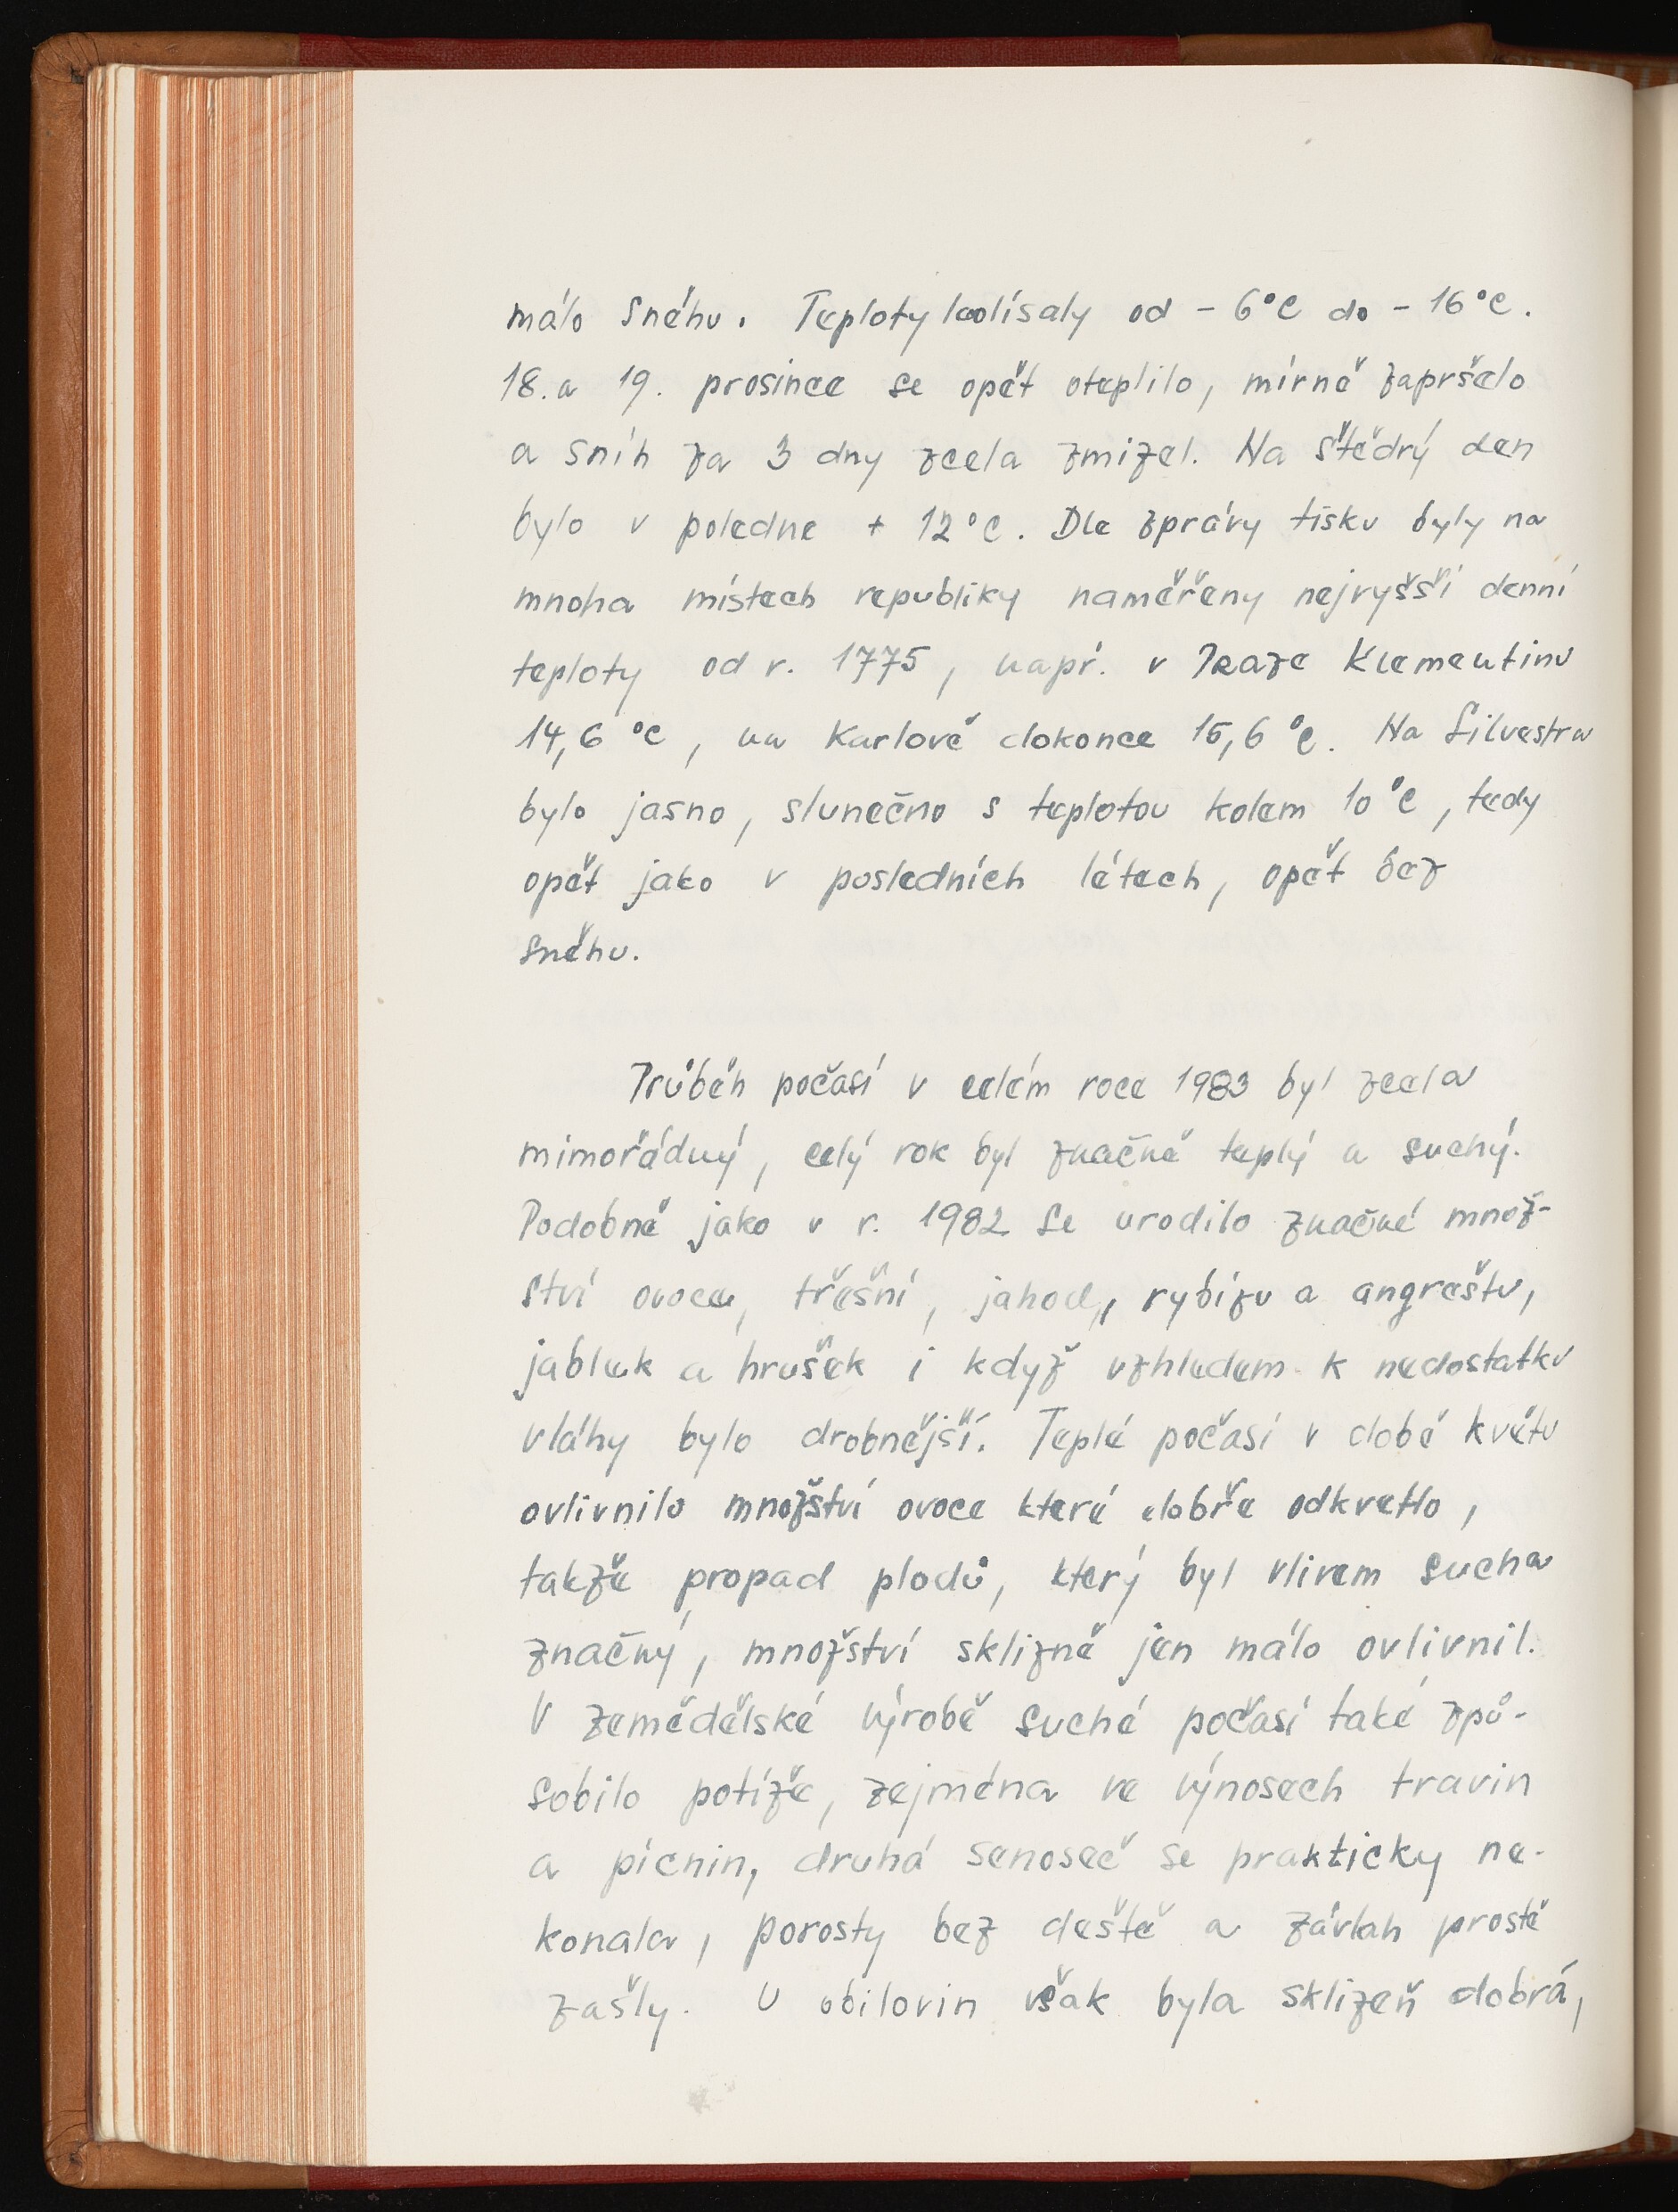 málo sněhu. Teploty kolísaly od - 6°C do - 16°C.
18. a 19. prosince se opět oteplilo, mírně zapršelo
a sníh za 3 dny zcela zmizel. Na Štědrý den
bylo v poledne + 12°C. Dle zprávy tisku byly na
mnoha místech republiky naměřeny nejvyšší denní
teploty od r. 1775, např. v Praze Klementinu
14,6 °C, na Karlově dokonce 15,6 °C. Na Silvestra
bylo jasno, slunečno s teplotou kolem 10 °C, tedy
opět jako v posledních létech, opět bez
sněhu.
Průběh počasí v celém roce 1983 byl zcela
mimořádný, celý rok byl značně teplý a suchý.
Podobně jako v r. 1982 se urodilo značné množ-
ství ovoce, třešní, jahod, rybízu a angreštu,
jablek a hrušek i když vzhledem k nedostatku
vláhy bylo drobnější. Teplé počasí v době květu
ovlivnilo množství ovoce které dobře odkvetlo,
takže propad plodů, který byl vlivem sucha
značný, množství sklizně jen málo ovlivnil.
V zemědělské výrobě suché počasí také způ-
sobilo potíže, zejména ve výnosech travin
a pícnin, druhá senoseč se prakticky ne-
konala, porosty bez deště a závlah prostě
zašly. U obilovin však byla sklizeň dobrá,